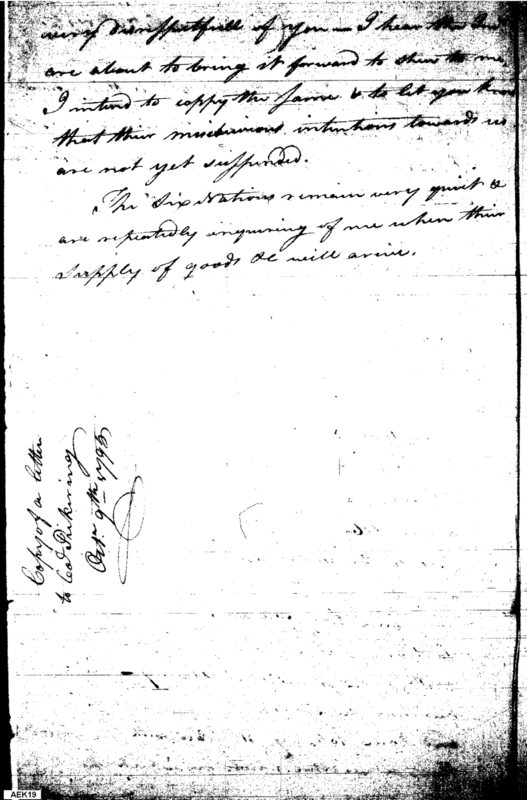 very disrespectfull of you — I hear the
are about to bring it forward to shew to me,
I intend to coppy the same & to let you know
that their mischievious intentions towards us
are not yet suspended.
The Six Nations remain very quiet &
are repeatedly enquiring of me when their
supply of goods &c will arive.
Copy of a letter
to Col. Pickering
Octr. 9th 1795
AEK19